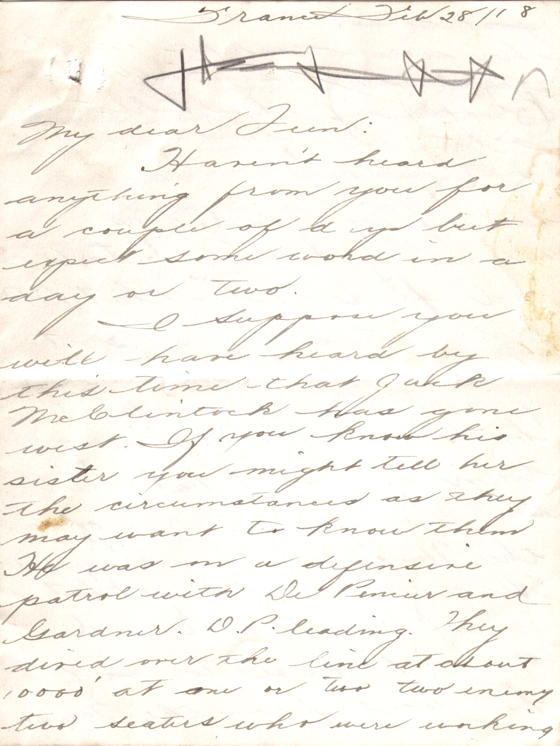 France Feb 28/18
My dear Fun:
Haven't heard
anything from you for
a couple of d ys but
expect some word in a
day or two.
I suppose you
will have heard by
this time that Jack
McClintock has gone
west. If you know his
sister you might tell her
the circumstances as they
may want to know them
He was on a defensive
patrol with De Pencier and
Gardner. D.P. leading. They
dived over the line at about
10000' at one or two two enemy
two seaters who were working